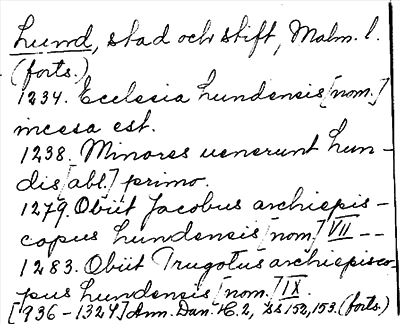 Lund, stad och stift, Malm. l.
(forts.)
1234. Ecclesia Lundensis [nom.]
incesa est.
1238. Minores uenerunt Lun-
dis [abl.] primo.
1279. Obiit Jacobus archiepis-
copus Lundensis [nom] VII --
1283. Obiit Trugotus archiepisco-
pus Lundensis [nom.] IX.
[936-1324] Ann. Dan. H. 2, ss 152, 153. (forts.)